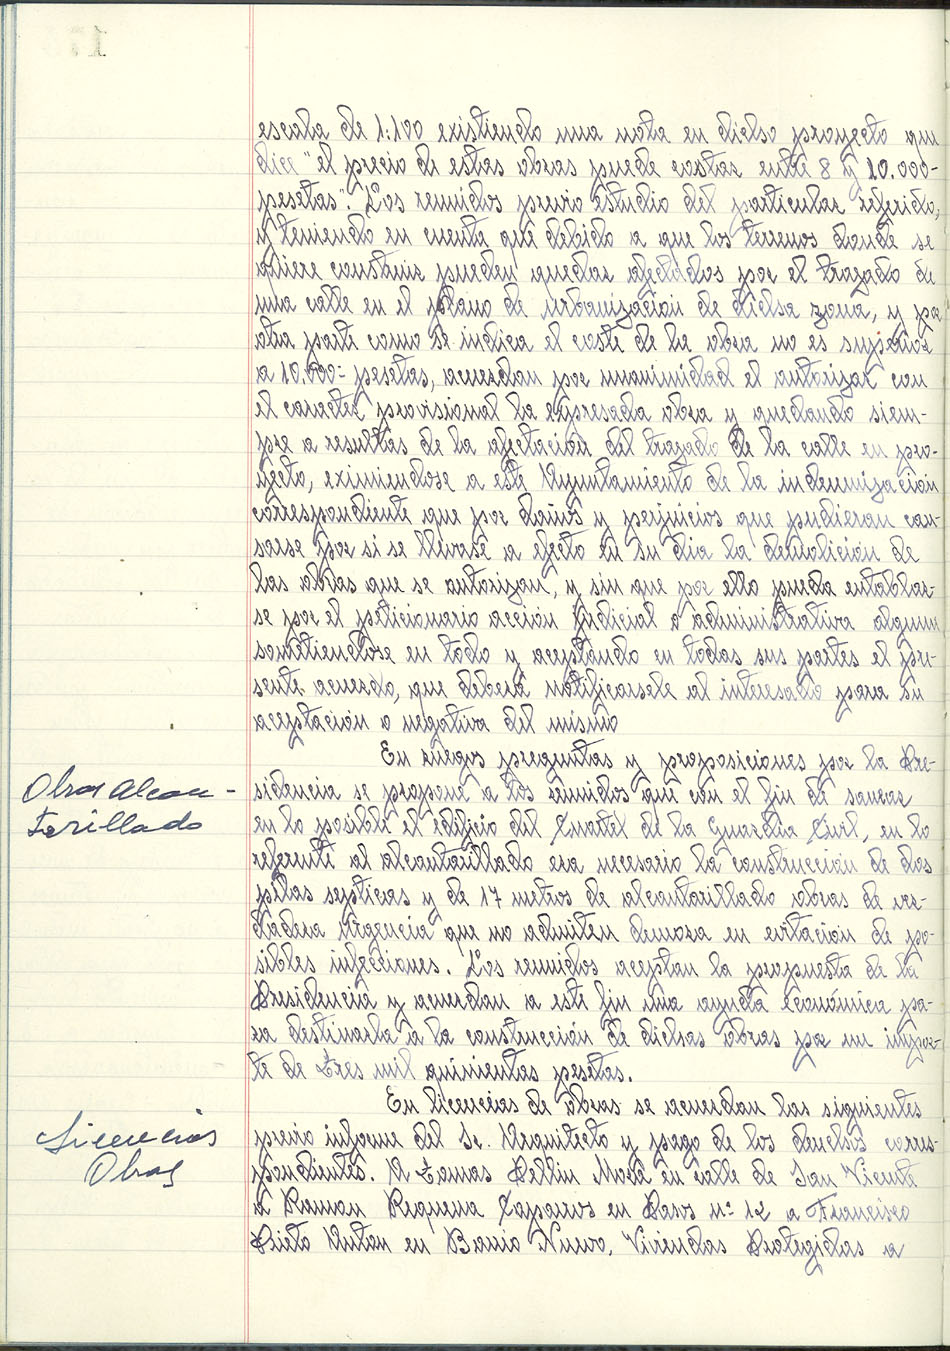 escala de 1:100 existiendo una nota en dicho proyecto que
dice "el precio de estas obras puede costar entre 8 y 10.000-
pesetas". Los reunidos previo estudio del particular referido,
y teniendo en cuenta que debido a que los terrenos donde se
quiere construir pueden quedar afectados por el trazado de
una calle en el plano de urbanización de dicha zona, y por
otra parte como se indica el coste de la obra no es superior
a 10.000- pesetas, acuerdan por unanimidad el autorizar con
el caracter provisional la expresada obra y quedando siem-
pre a resultas de la afectación del trazado de la calle en pro-
yecto, eximiendose a este Ayuntamiento de la indemnización
correspondiente que por daños y perjuicios que pudieran cau-
sarse por si se llevase a efecto en su dia la demolición de
las obras que se autorizan, y sin que por ello pueda entablar-
se por el peticionario acción judicial o administrativa alguna
sometiendose en todo y aceptando en todas sus partes el pre-
sente acuerdo, que deberá notificarsele al interesado para su
aceptación o negativa del mismo
En ruegos preguntas y proposiciones por la Pre-
Obras Alcan-
terillado
sidencia se propone a los reunidos que con el fin de sanear
en lo posible el edificio del Cuartel de la Guardia Civil, en lo
referente al alcantarillado era necesario la construcción de dos
pilas septicas y de 17 metros de alcantarillado obras de ver-
dadera urgencia que no admiten demora en evitación de po-
sibles infecciones. Los reunidos aceptan la propuesta de la
Presidencia y acuerdan a este fin una ayuda económica pa-
ra destinarla a la construcción de dichas obras por un impor-
te de tres mil quinientas pesetas.
En licencias de obras se acuerdan las siguientes
Licencias
Obras
previo informe del Sr. Arquitecto y pago de los derechos corres-
pondientes. A Tomas Bellin Mora en calle de San Vicente
a Ramon Requena en nº 12 a Francisco
Prieto en Barrio Nuevo, Viviendas Protegidas a